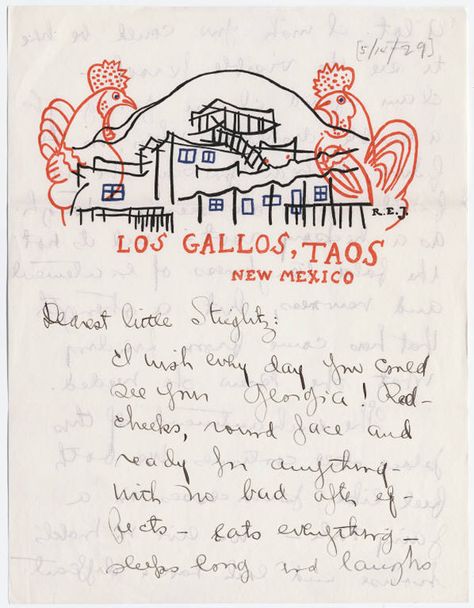 [5/14/29]
R.E.J.
LOS GALLOS, TAOS
NEW MEXICO
Dearest little Stieglitz:
I wish every day you could
see your Georgia! Red-
cheeks, round face and
ready for anything–
with no bad after ef-
fects – eats everything –
sleeps long and laughs